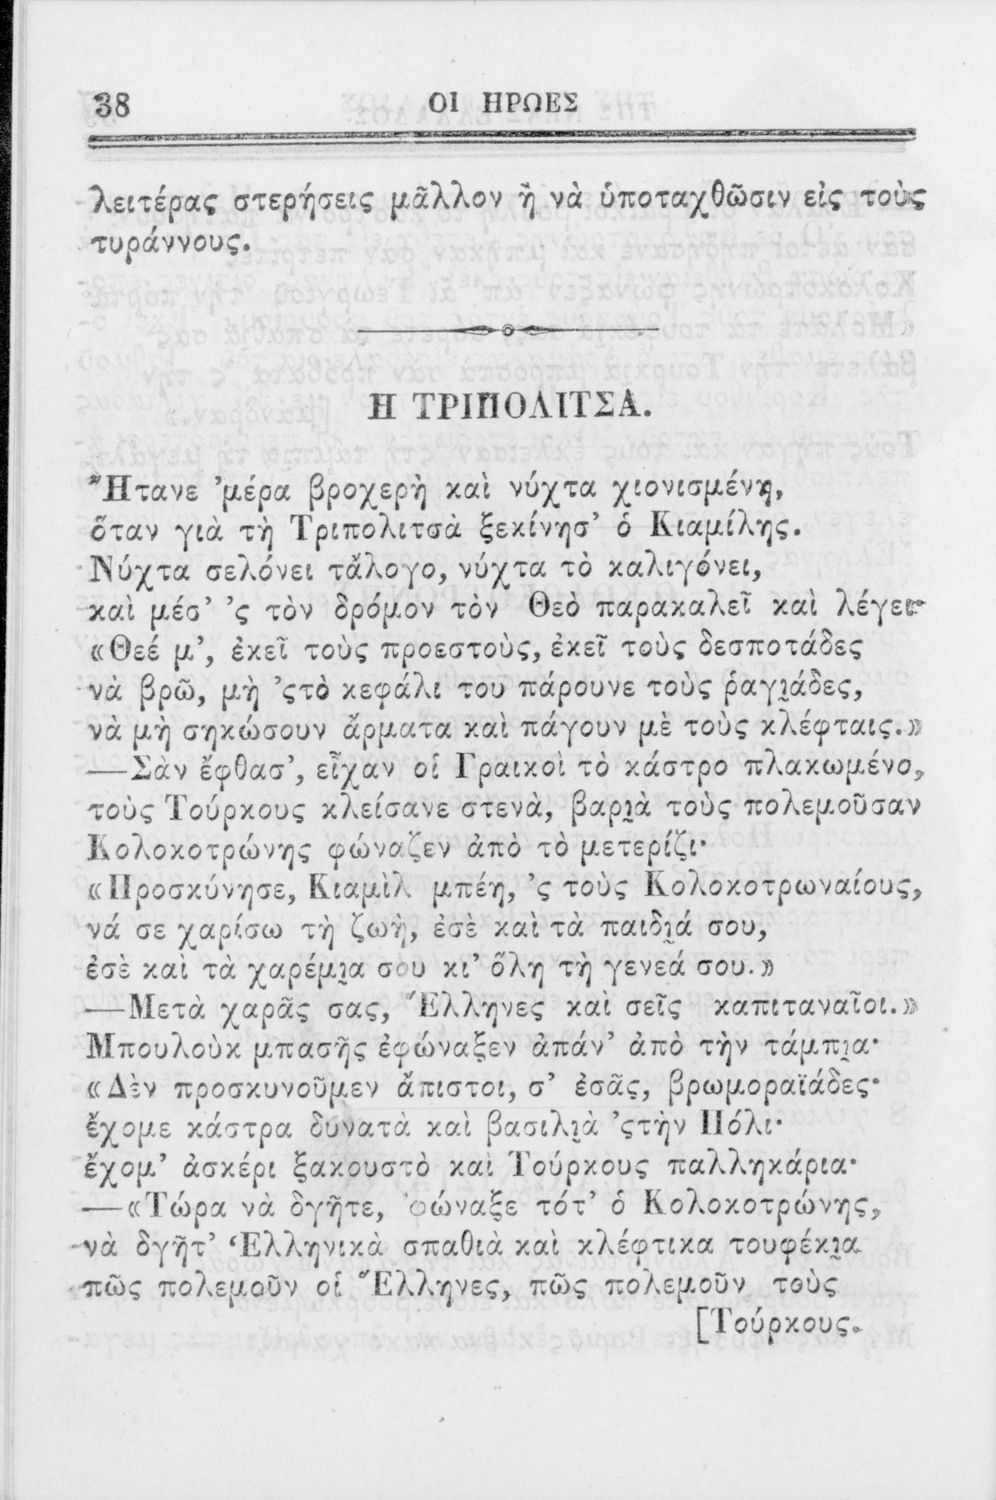 38
ΟΙ ΗΡΩΕΣ
λειτέρας στερήσεις μᾶλλον ἢ νὰ ὑποταχθῶσιν εἰς τοὺς
τυράννους.
Η ΤΡΙΠΟΛΙΤΣΑ.
Ἤτανε ’μέρα βροχερὴ καὶ νύχτα χιονισμένη,
ὅταν γιὰ τὴ Τριπολιτσὰ ξεκίνησ’ ὁ Κιαμίλης.
Νύχτα σελόνει τἄλογο, νύχτα τὸ καλιγόνει,
καὶ μέσ’ ’ς τὸν δρόμον τὸν Θεὸ παρακαλεῖ καὶ λέγει·
«Θεέ μ’, ἐκεῖ τοὺς προεστοὺς, ἐκεῖ τοὺς δεσποτάδες
νὰ βρῶ, μὴ ’ςτὸ κεφάλι του πάρουνε τοὺς ῥαγι̯άδες,
νὰ μὴ σηκώσουν ἄρματα καὶ πάγουν μὲ τοὺς κλέφταις.»
—Σὰν ἔφθασ’, εἶχαν οἱ Γραικοὶ τὸ κάστρο πλακωμένο,
τοὺς Τούρκους κλείσανε στενὰ, βαρι̯ὰ τοὺς πολεμοῦσαν
Κολοκοτρώνης φώναζεν ἀπὸ τὸ μετερίζι·
«Προσκύνησε, Κιαμὶλ μπέη, ’ς τοὺς Κολοκοτρωναίους,
νά σε χαρίσω τὴ ζωὴ, ἐσὲ καὶ τὰ παιδι̯ά σου,
ἐσὲ καὶ τὰ χαρέμι̯α σου κι’ ὅλη τὴ γενεά σου.»
—Μετὰ χαρᾶς σας, Ἕλληνες καὶ σεῖς καπιταναῖοι.»
Μπουλοὺκ μπασῆς ἐφώναξεν ἀπάν’ ἀπὸ τὴν τάμπι̯α·
«Δὲν προσκυνοῦμεν ἄπιστοι, σ’ ἐσᾶς, βρωμοραϊάδες·
ἔχομε κάστρα δυνατὰ καὶ βασιλι̯ὰ ’ςτὴν Πόλι·
ἔχομ’ ἀσκέρι ξακουστὸ καὶ Τούρκους παλληκάρια·
—«Τώρα νὰ δγῆτε, φώναξε τότ’ ὁ Κολοκοτρώνης,
νὰ δγῆτ’ Ἑλληνικὰ σπαθιὰ καὶ κλέφτικα τουφέκι̯α
πῶς πολεμοῦν οἱ Ἕλληνες, πῶς πολεμοῦν τοὺς
[Τούρκους.